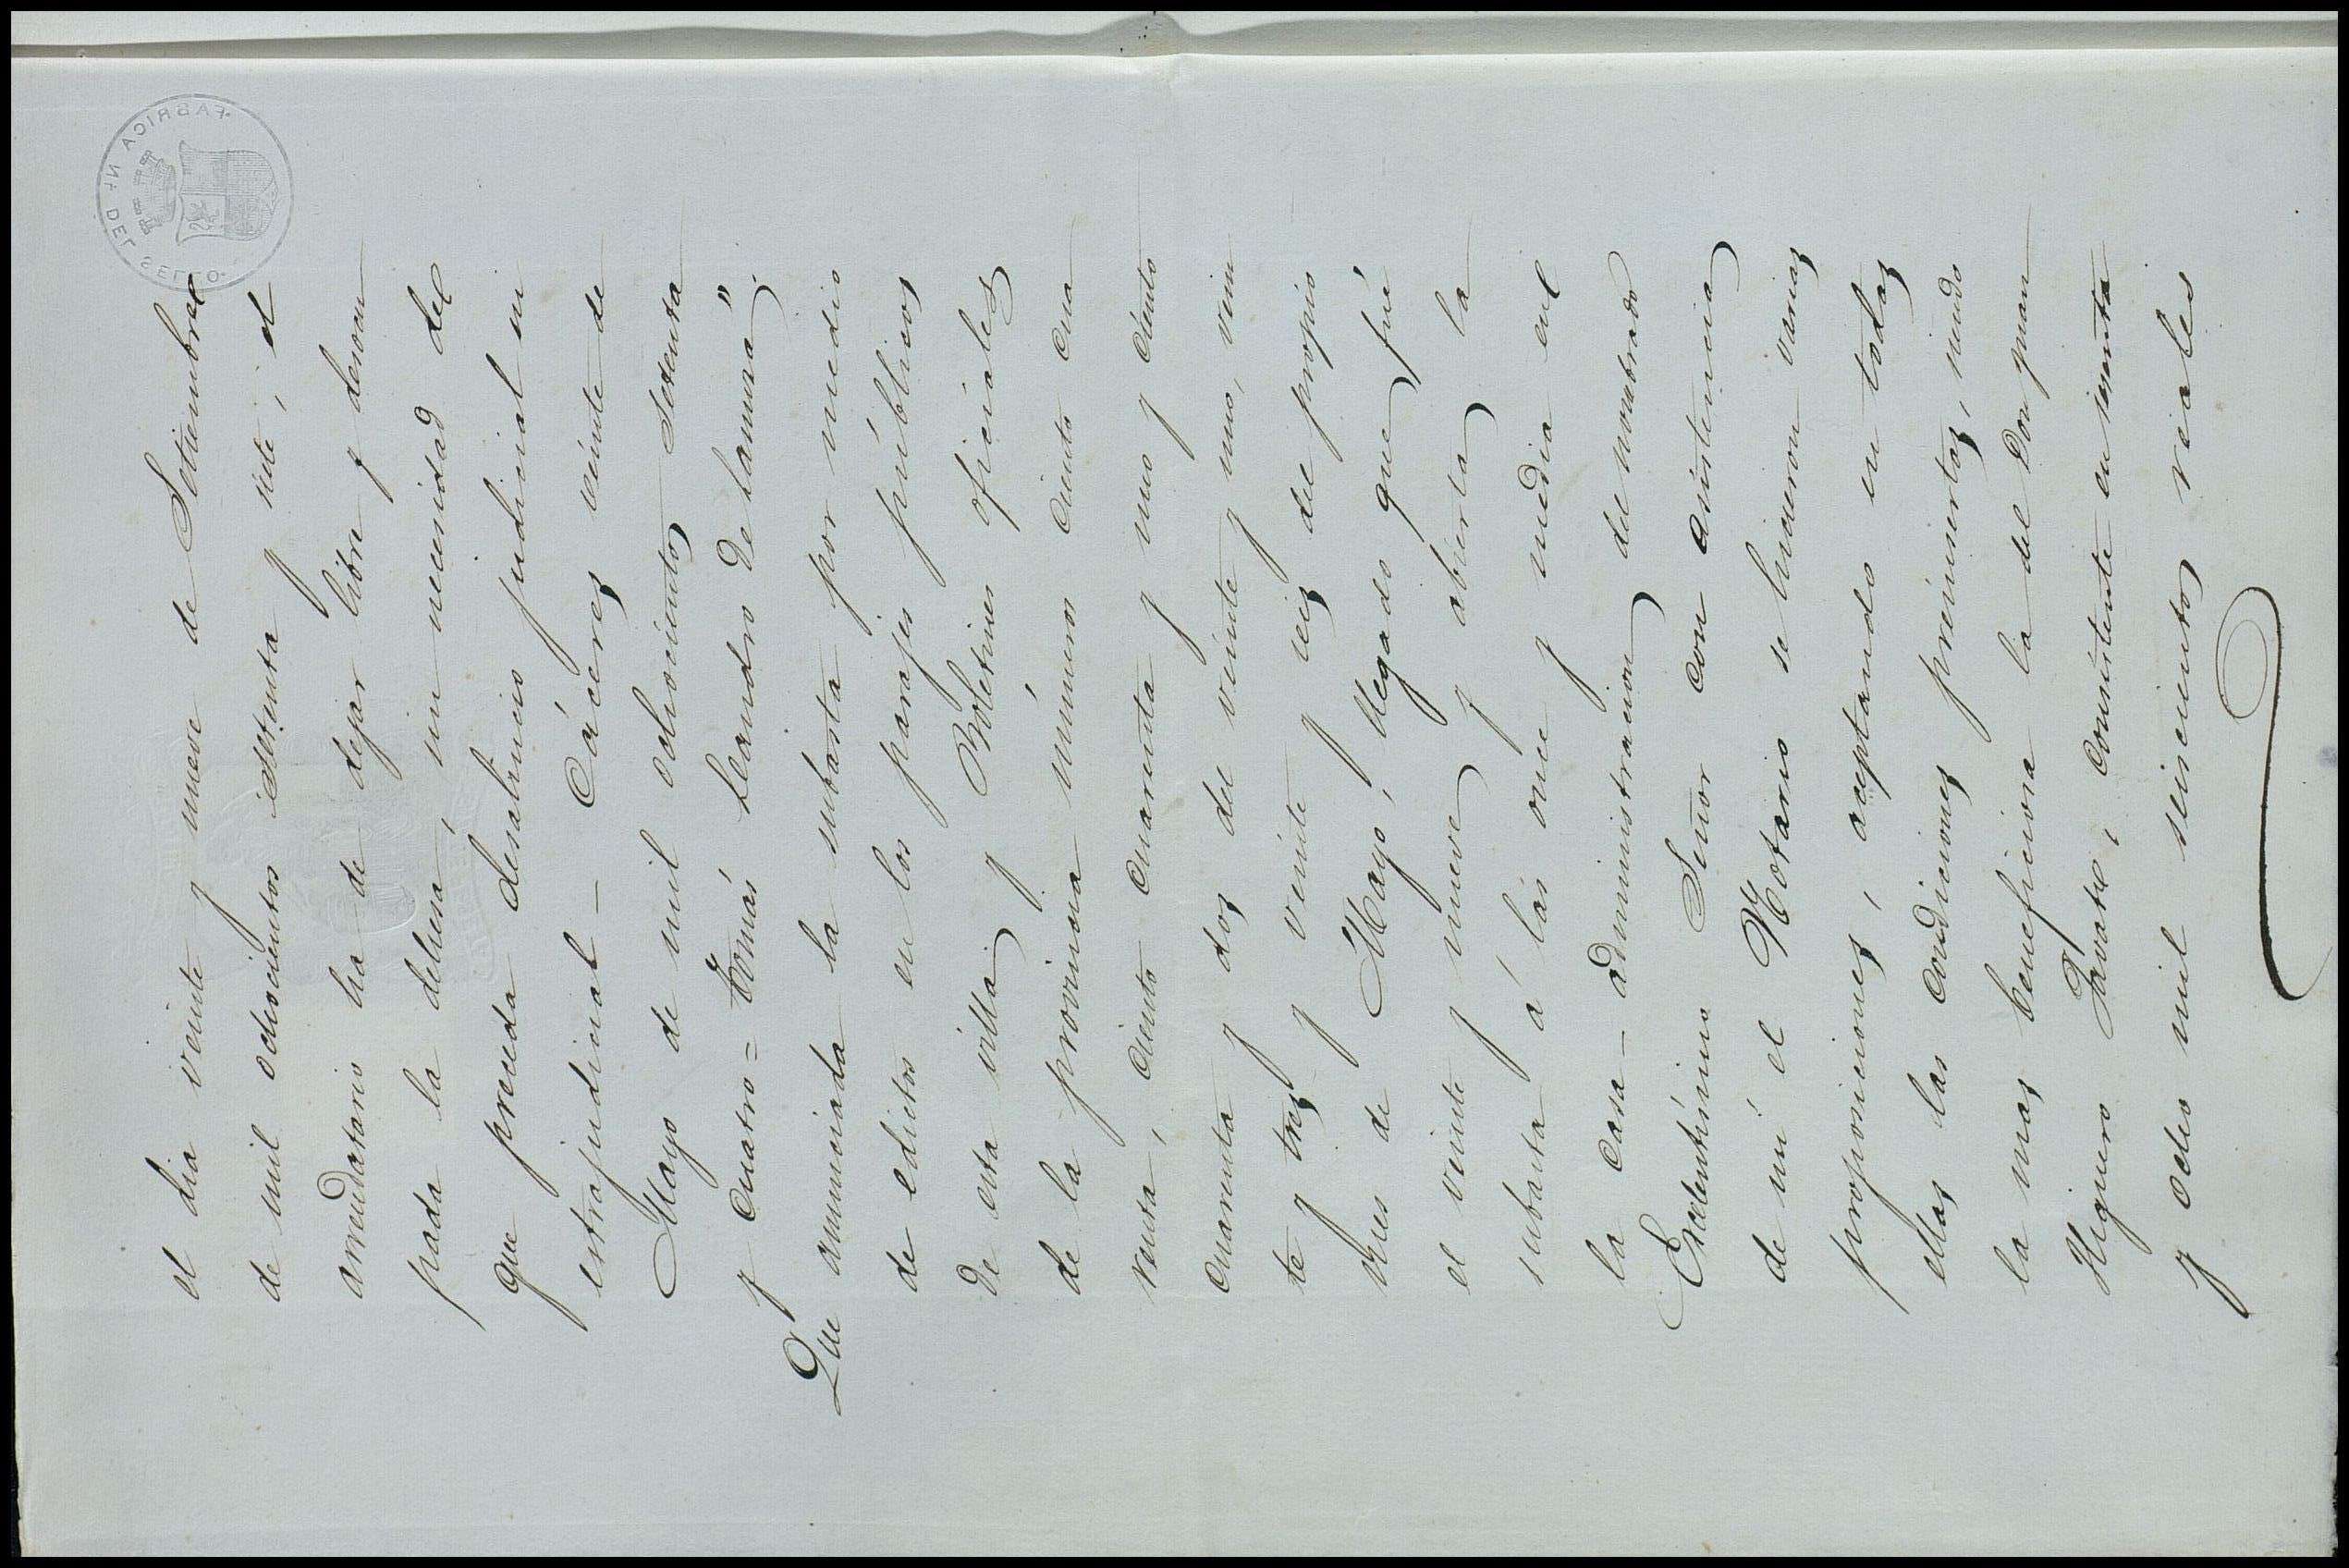 el dia veinte y nueve de Setiembre
de mil ochocientos setenta y siete, el
arrendatario ha de dejar libre y desocu
pada la dehesa, sin necesidad del
que preceda desahucio judicial ni
estrajudicial - Cáceres veinte de
Mayo de mil ochocientos setenta
y cuatro = Tomás Leandro de Lamuza".
Que anunciada la subasta por medio
de edictos en los parajes públicos
de esta villa y Boletines oficiales
de la provincia números ciento cua
renta, ciento cuarenta y uno y ciento
cuarenta y dos del veinte y uno, vein
te y tres y veinte y seis del propio
mes de Mayo, llegado que fué
el veinte y nueve y abierta la
subasta á las once y media en
la casa - administracion del nombrado
Excelentísimo Señor con asistencia
de mí el Notario se hicieron varias
proposiciones, aceptando en todas
ellas las condiciones preinsertas, siendo
la mas beneficiosa la del Don Juan
Higuero consistente en
y ocho mil seiscientos reales
FABRICA NL. DEL SELLO